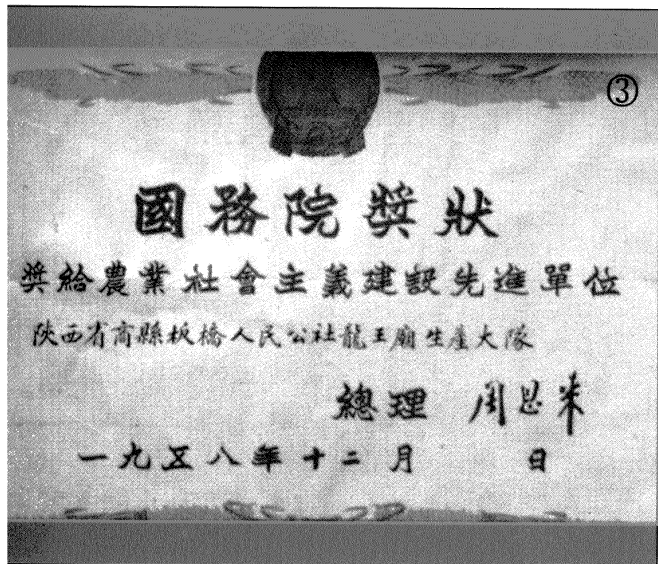 ③
國務院獎狀
獎給農業社會主義建設先進單位
陝西省商縣板橋人民公社龍王廟生產大隊
總理 周恩來
一九五八年十二月 日